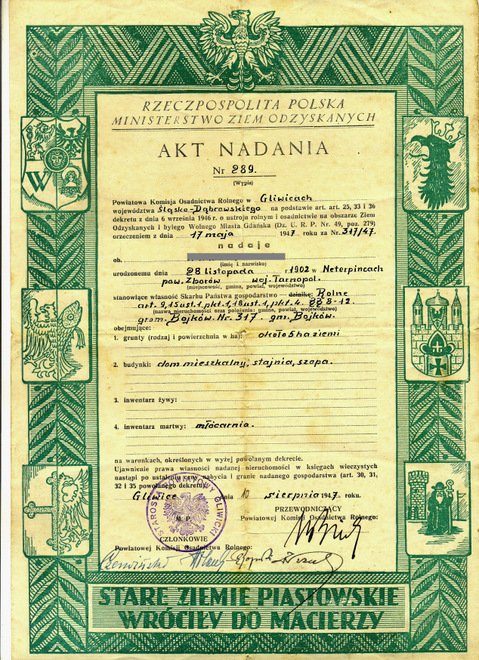 RZECZPOSPOLITA POLSKA
MINISTERSTWO ZIEM ODZYSKANYCH
AKT NADANIA
Nr 289.
(Wypis)
Powiatowa Komisja Osadnictwa Rolnego w Gliwicach
województwa Śląsko-Dąbrowskiego na podstawie art. art. 25, 33 i 36
dekretu z dnia 6 września 1946 r. o ustroju rolnym i osadnictwie na obszarze Ziem
Odzyskanych i byłego Wolnego Miasta Gdańska (Dz. U. R. P. Nr. 49, poz. 279)
orzeczeniem z dnia 17 maja 1947 roku za Nr. 317/47.
nadaje
ob.
(imię i nazwisko)
urodzonemu dnia 28 listopada r 1902 w Neterpincach
pow. Zborów woj. Tarnopol.
(miejscowość, gmina, powiat, województwo)
stanowiące własność Skarbu Państwa gospodarstwo – Rolne
art. 9, 15 ust. 1. pkt. 1, 18 ust. 1, pkt. 4. 8-12.
(nazwa nieruchomości oraz położenie: gmina, powiat, województwo)
grom. Bojków. Nr. 317. gm. Bojków.
obejmujące:
1. grunty (rodzaj i powierzchnia w ha): około 5 ha ziemi
2. budynki: dom mieszkalny, stajnia, szopa.
3. inwentarz żywy:
4. inwentarz martwy: młócarnia.
na warunkach, określonych w wyżej powołanym dekrecie.
Ujawnienie prawa własności nadanej nieruchomości w księgach wieczystych
nastąpi po ustaleniu ceny nabycia i granic nadanego gospodarstwa (art. 30, 31,
32 i 35 powołanego dekretu).
Gliwice dnia sierpnia 1947 roku.
PRZEWODNICZĄCY
Powiatowej Komisji Osadnictwa Rolnego:
STAROSTWO POWIATOWY GLIWICKI
M. P.
CZŁONKOWIE
Powiatowej Komisji Osadnictwa Rolnego:
W
STARE ZIEMIE PIASTOWSKIE
WRÓCIŁY DO MACIERZY